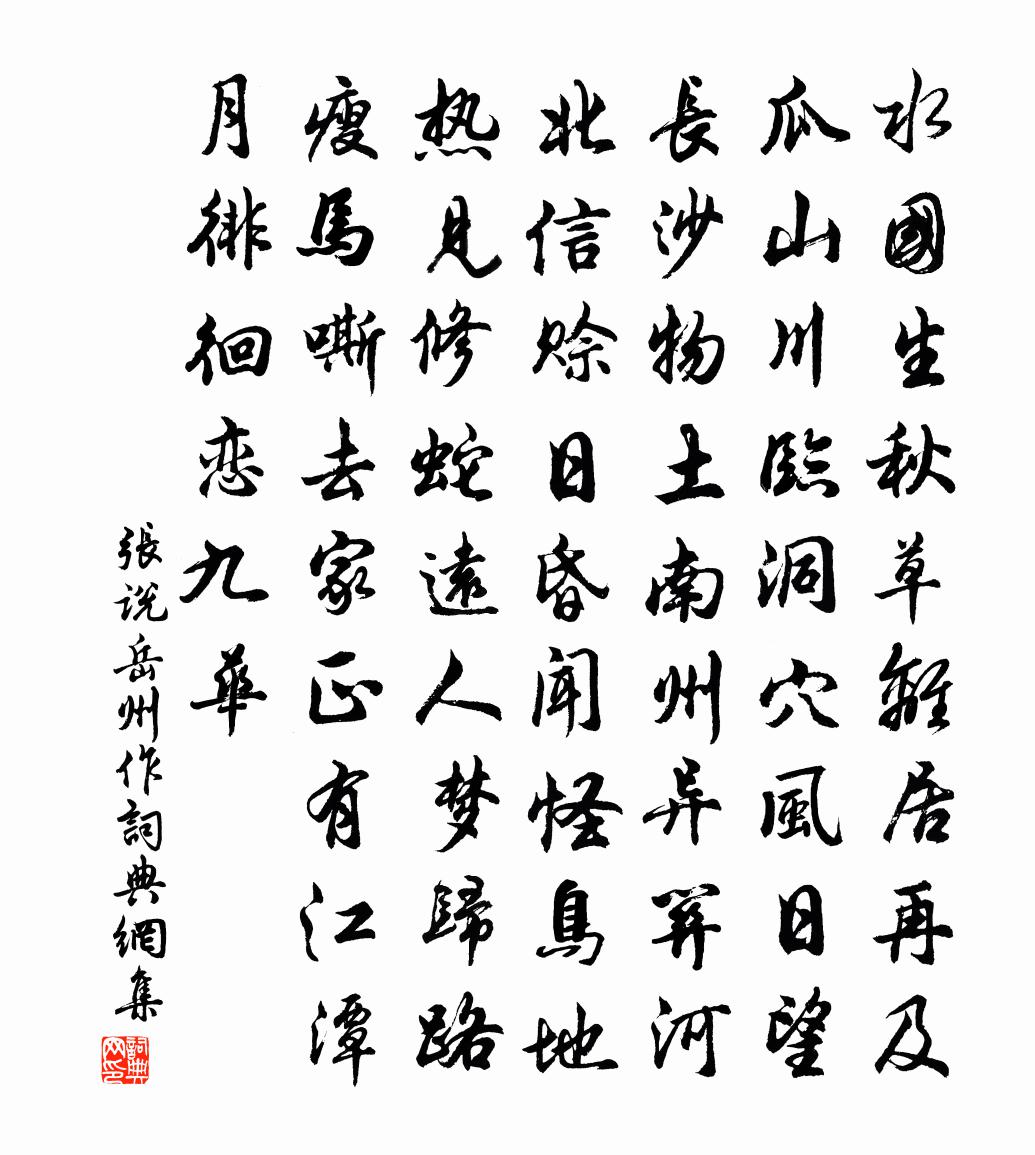 水國生秋草離居再及
瓜山川臨洞穴風日望
長沙物土南州异關河
北信賒日昏聞怪鳥地
热見修蛇遠人梦歸路
瘦馬嘶去家正有江潭
月徘徊恋九華
張説岳州作詞典網集
詞典网印